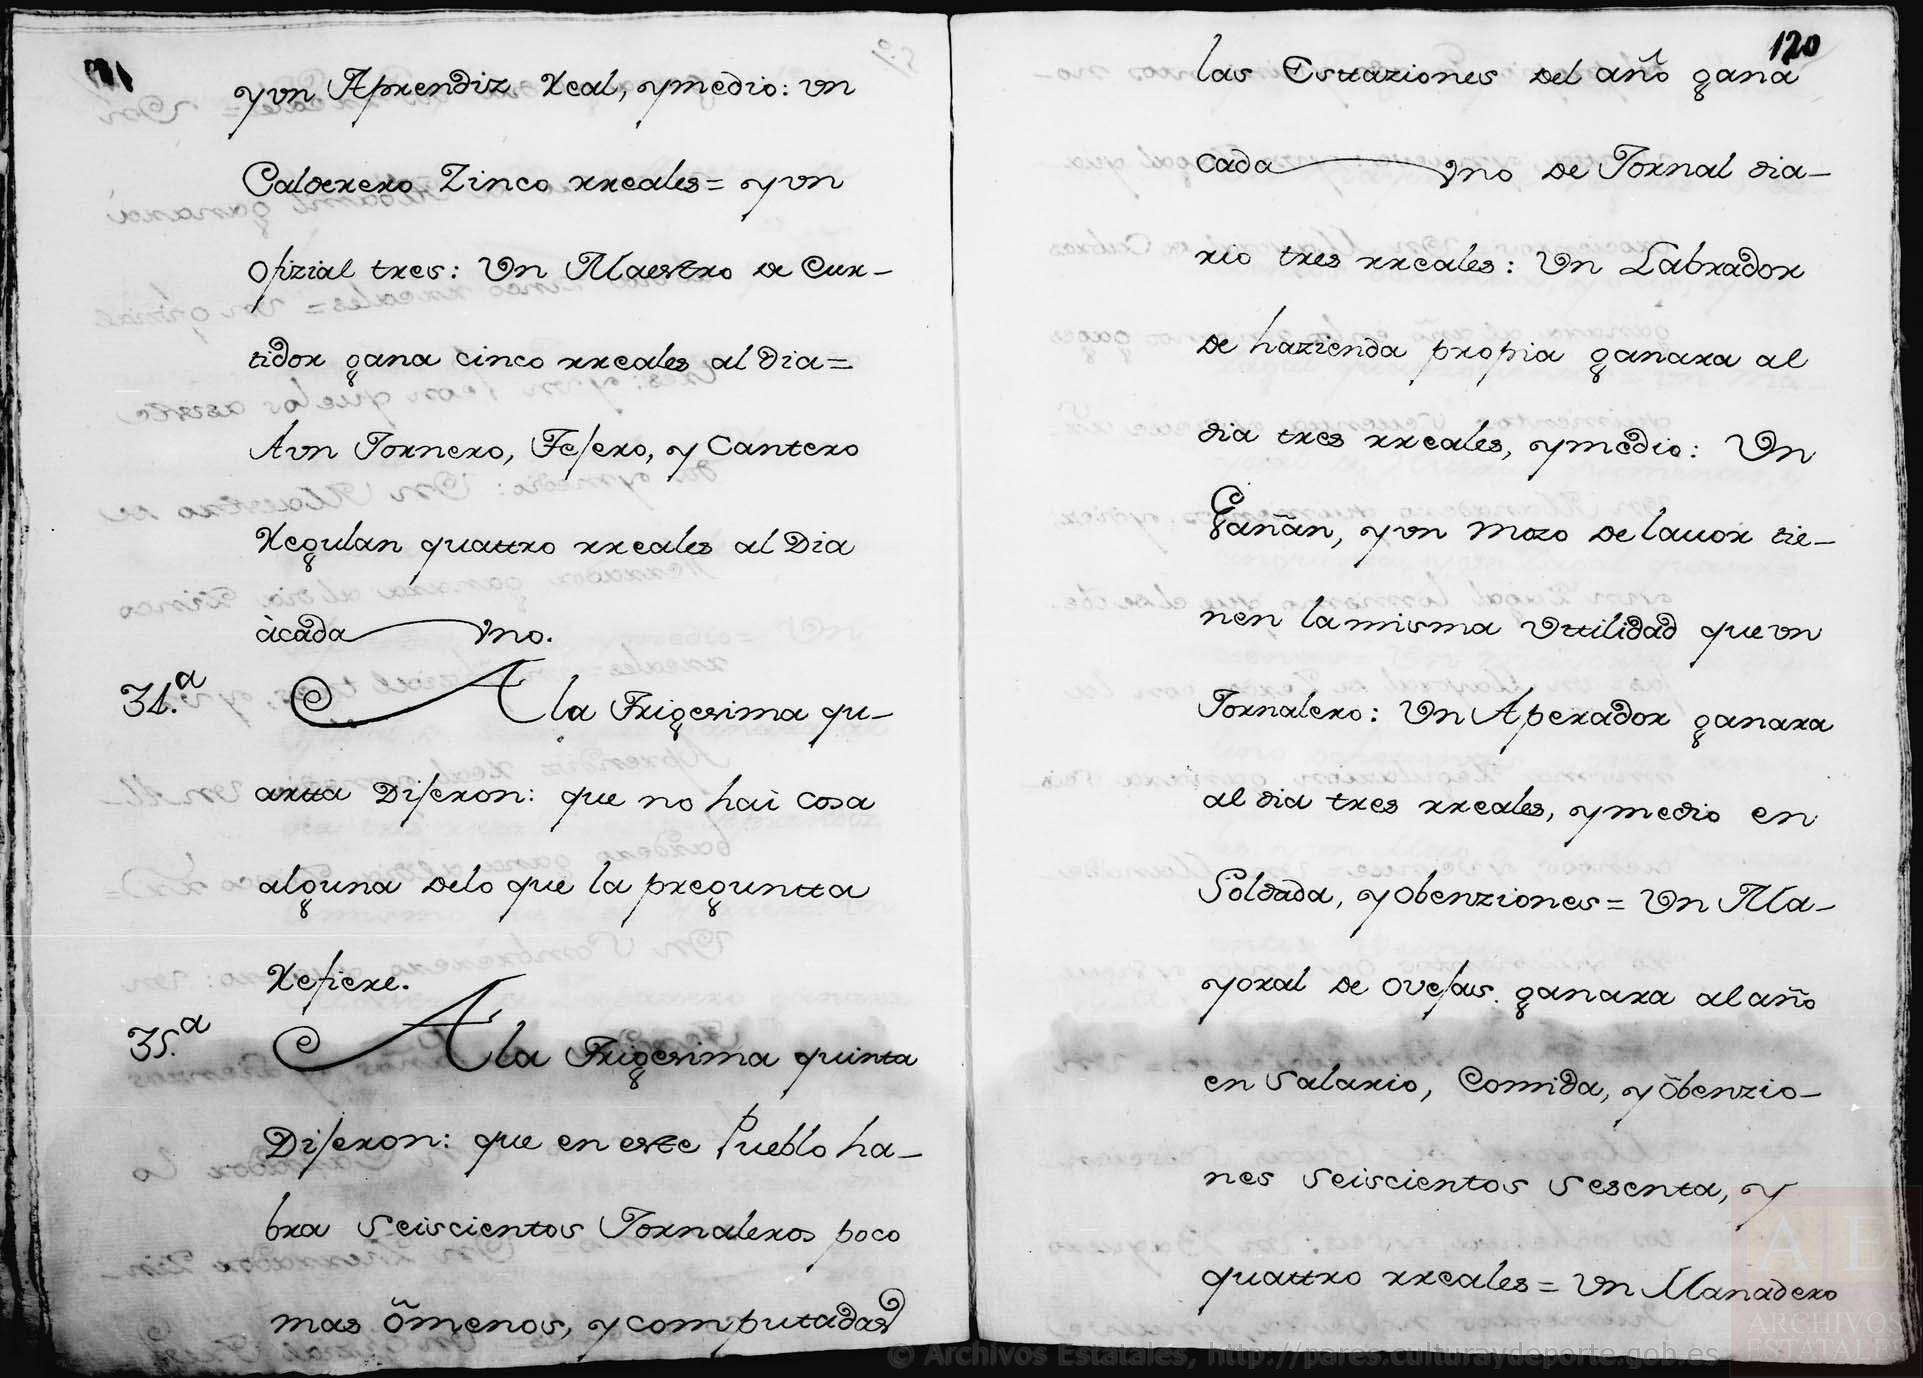 y vn Aprendiz Real, y medio: vn
Calderero Zinco rreales = y vn
Ofizial tres: Vn Maestro de Cur-
tidor gana cinco rreales al dia =
A vn Tornero, Tejero, y Cantero
Regulan quattro rreales al Dia
à cada vno.
34.ª A la Trigesima qu-
artta Dijeron: que no hai cosa
alguna de lo que la preguntta
Refiere.
35.ª A la Trigesima quinta
Dijeron: que en este Pueblo ha-
bra Seiscientos Jornaleros poco
mas õ menos, y computadas
120
las Estaziones del año gana
cada vno de Jornal dia-
rio tres rreales: Vn Labrador
de hazienda propia ganara al
dia tres rreales, y medio: Vn
Gañan, y vn mozo de lauor tie-
nen la misma Vttilidad que vn
Jornalero: Vn Aperador ganara
al dia tres rreales, y medio en
Soldada, y obenziones = Vn Ma-
yoral de ovejas ganara al año
en Salario, Comida, y õbenzio-
nes Seiscientos Sesenta, y
quattro rreales = Vn Manadero
© Archivos Estatales, http://pares.culturaydeporte.gob.es
AE
ARCHIVOS
ESTATALES